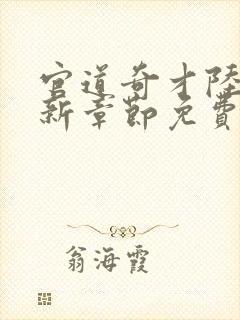 官道奇才陸
新章節免費
翁海霞